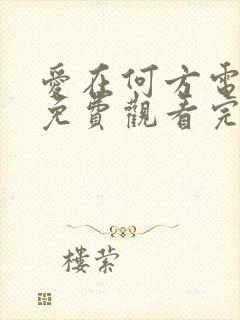 愛在何方電
免費觀看完
樓縈